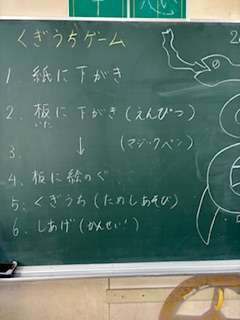 くぎうちゲーム
1. 紙に下がき
2. 板に下がき(えんぴつ)
いた
3. ↓ (マジックペン)
4. 板に絵のぐ
5. くぎうち(ためしあそび)
6. しあげ(かんせい!)